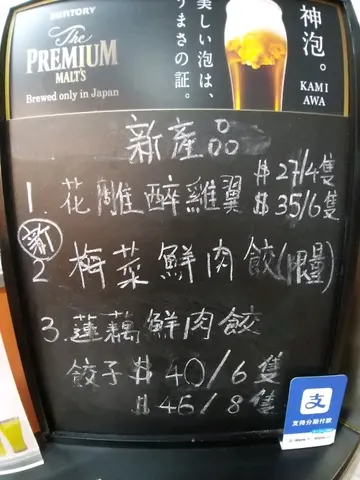 SUNTORY
The
PREMIUM
MALT'S
Brewed only in Japan
美しい泡は、
うまさの証。
神泡。
KAMI
AWA
新產品
1. 花雕醉雞翼 $27/4隻
$35/6隻
新
2 梅菜鮮肉餃(限量)
3. 蓮藕鮮肉餃
餃子 $40/6隻
$46/8隻
支
支持分期付款